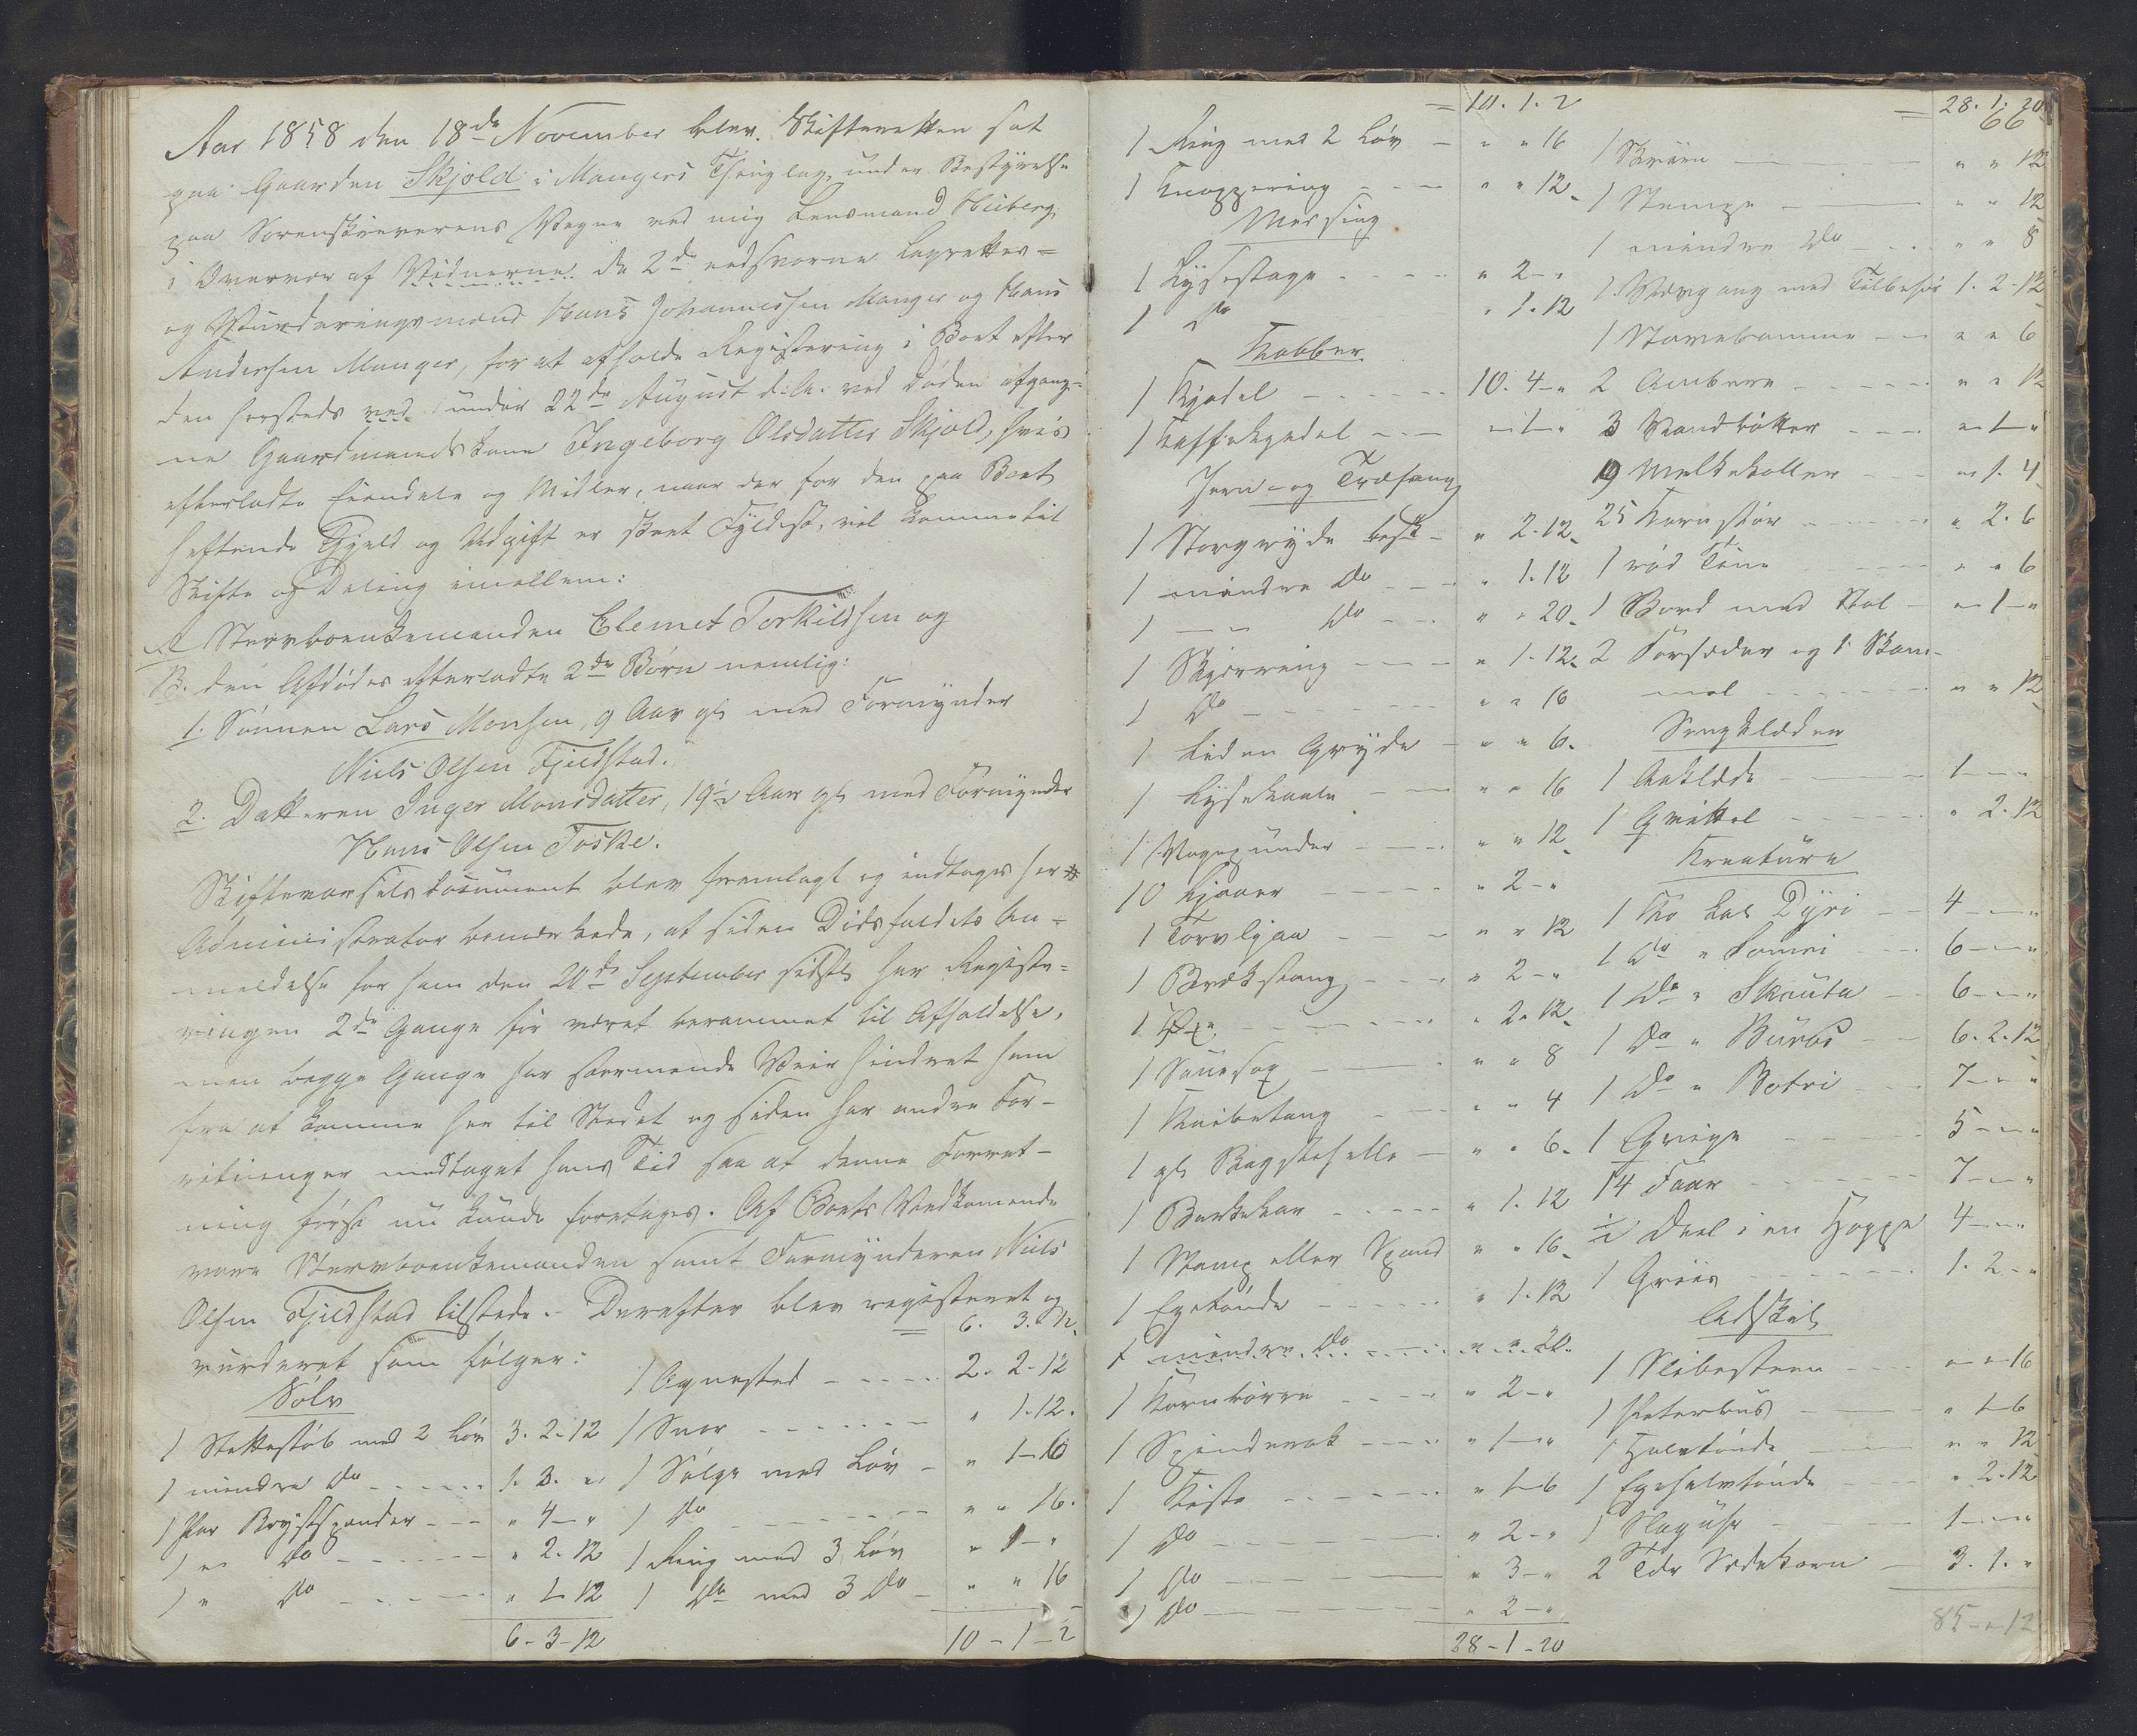 Aar 1858 den 18de November blev Skifteretten sat
paa Gaarden Skjold i Mangers Thinglag, under Bestyrelse
paa Sorenskriverens Vegne ved mig Lensmand Heiberg,
i Overvær af Vidnerne de 2de edsvorne Lagrettes=
og Vurderingsmænd Hans Johannessen Manger og Hans
Andersen Manger, for at afholde Registrering i Boet efter
den hersteds ved under 22de August d: A: ved Døden afgang=
ne Gaardmandskone Ingeborg Olsdatter Skjold, hvis
efterladte Eiendele og Midler, naar der for den paa Boet
heftende Gjæld og Udgift er skeet Fyldist, vil komme til
Skifte og Deling imellem:
A Stervboenkemanden Clemet Torkildsen og
B. den Afdødes efterladte 2de Børn nemlig:
1. Sønnen Lars Monsen, 9 Aar gl. med Formynder
Niels Olsen Fjeldstad.
2. Datteren Inger Monsdatter, 19½ Aar gl. med Formynder
Hans Olsen Toske.
Skiftevarselsdocument blev fremlagt og indtages her #
Administrator bemærkede, at siden Dødsfaldets An=
meldelse for ham den 20de September sidstl. har Registe=
ringen 2de Gange før været berammet til Afholdelse,
men begge Gange har stormende Veir hindret ham
fra at komme her til Stedet og siden har andre For-
retninger medtaget hans Tid saa at denne Forret-
ning først nu kunde foretages. Af Boets Vedkommende
vare Stervboenkemanden samt Formynderen Niels
Olsen Fjeldstad tilstede. Derefter blev registreret og
vurderet som følger:
Sølv
1 Stettestøb med 2 Løv 3. 2. 12
1 mindre Do 1. 3. "
1 Par Brystspænder " 4 - "
1 " Do " 2. 12
1 " Do " 1. 12
6 - 3 - 12
= 6. 3. 12.
1 Agnested 2. 2. 12
1 Snor " 1. 12.
1 Sølge med Løv " 1 - 6
1 Do " " 16.
1 Ring med 3 Løv " 1 - "
1 Do med 3 Do " " 16
10 - 1 - 2
= 10. 1. 2
1 Ring med 2 Løv " " 16
1 Knappering " " 12
Messing
1 Lysestage " 2 - "
1 Do " 1. 12
Kobber
1 Kjedel 10. 4 - "
1 Kaffekjedel " 1 - "
Jern- og Træfang
1 Storgryde besk " 2. 12
1 mindre Do " 1. 12
1 — " Do " " 20
1 Skjærring " 1. 12
1 Do " " 16
1 Liden Gryde " " 6.
1 Lysekaale " " 16
1 Vægpundar " " 12
10 Ljaaer " 2 - "
1 Torvljaa " " 12
1 Brækstang " 2 - "
1 Øxe " 2. 12
1 Sauesax " " 8
1 Knibetang " " 4
1 gl. Bagstehelle " " 6
1 Barkekar " 1. 12
1 Stamp eller Spand " " 16
1 Egetønde " 1. 12
1 mindre Do " " 20.
1 Kornbørre " 2 - "
1 Spinderok " 1 - "
1 Kiste " 1 - 6
1 Do " 2 - "
1 Do " 3 - "
1 Do " 2 - "
28 - 1 - 20
66
= 28. 1. 20
1 Skrin " " 12
1 Stampe " " 12
1 mindre Do " " 8
1 Vævgang med Tilbehør 1. 2. 12
1 Stavebomme " " 6
2 Ambere " " 12
3 Vandbøtter " 1 - "
19 Melkekoller " 1. 4
25 Kornstør " 2. 6
1 rød Tine " " 6
1 Bord med Stol " 1 - "
2 Forsæder og 1 Skam-
mel " " 12
Sengklæder
1 Aaklæde 1 - "
1 Qvittel " 2. 12
Kreature
1 Ko kal. Dyri 4 - "
1 Do " Lomei 6 - "
1 Do " Skauta 6 - "
1 Do " Buros 6. 2. 12
1 Do " Botri 7 - "
1 Qvige 5 - "
14 Faar 7 - "
½ Deel i en Hoppe 4 - "
1 Griis 1. 2 - "
Adskil.
1 Slibesteen " " 16
1 " 1 - 6
1 Halvtønde " " 12
1 Egehalvtønde " 2. 12
1 Slaguhr 1 - "
2 Tdr Sædekorn 3. 1. "
85 - " 12